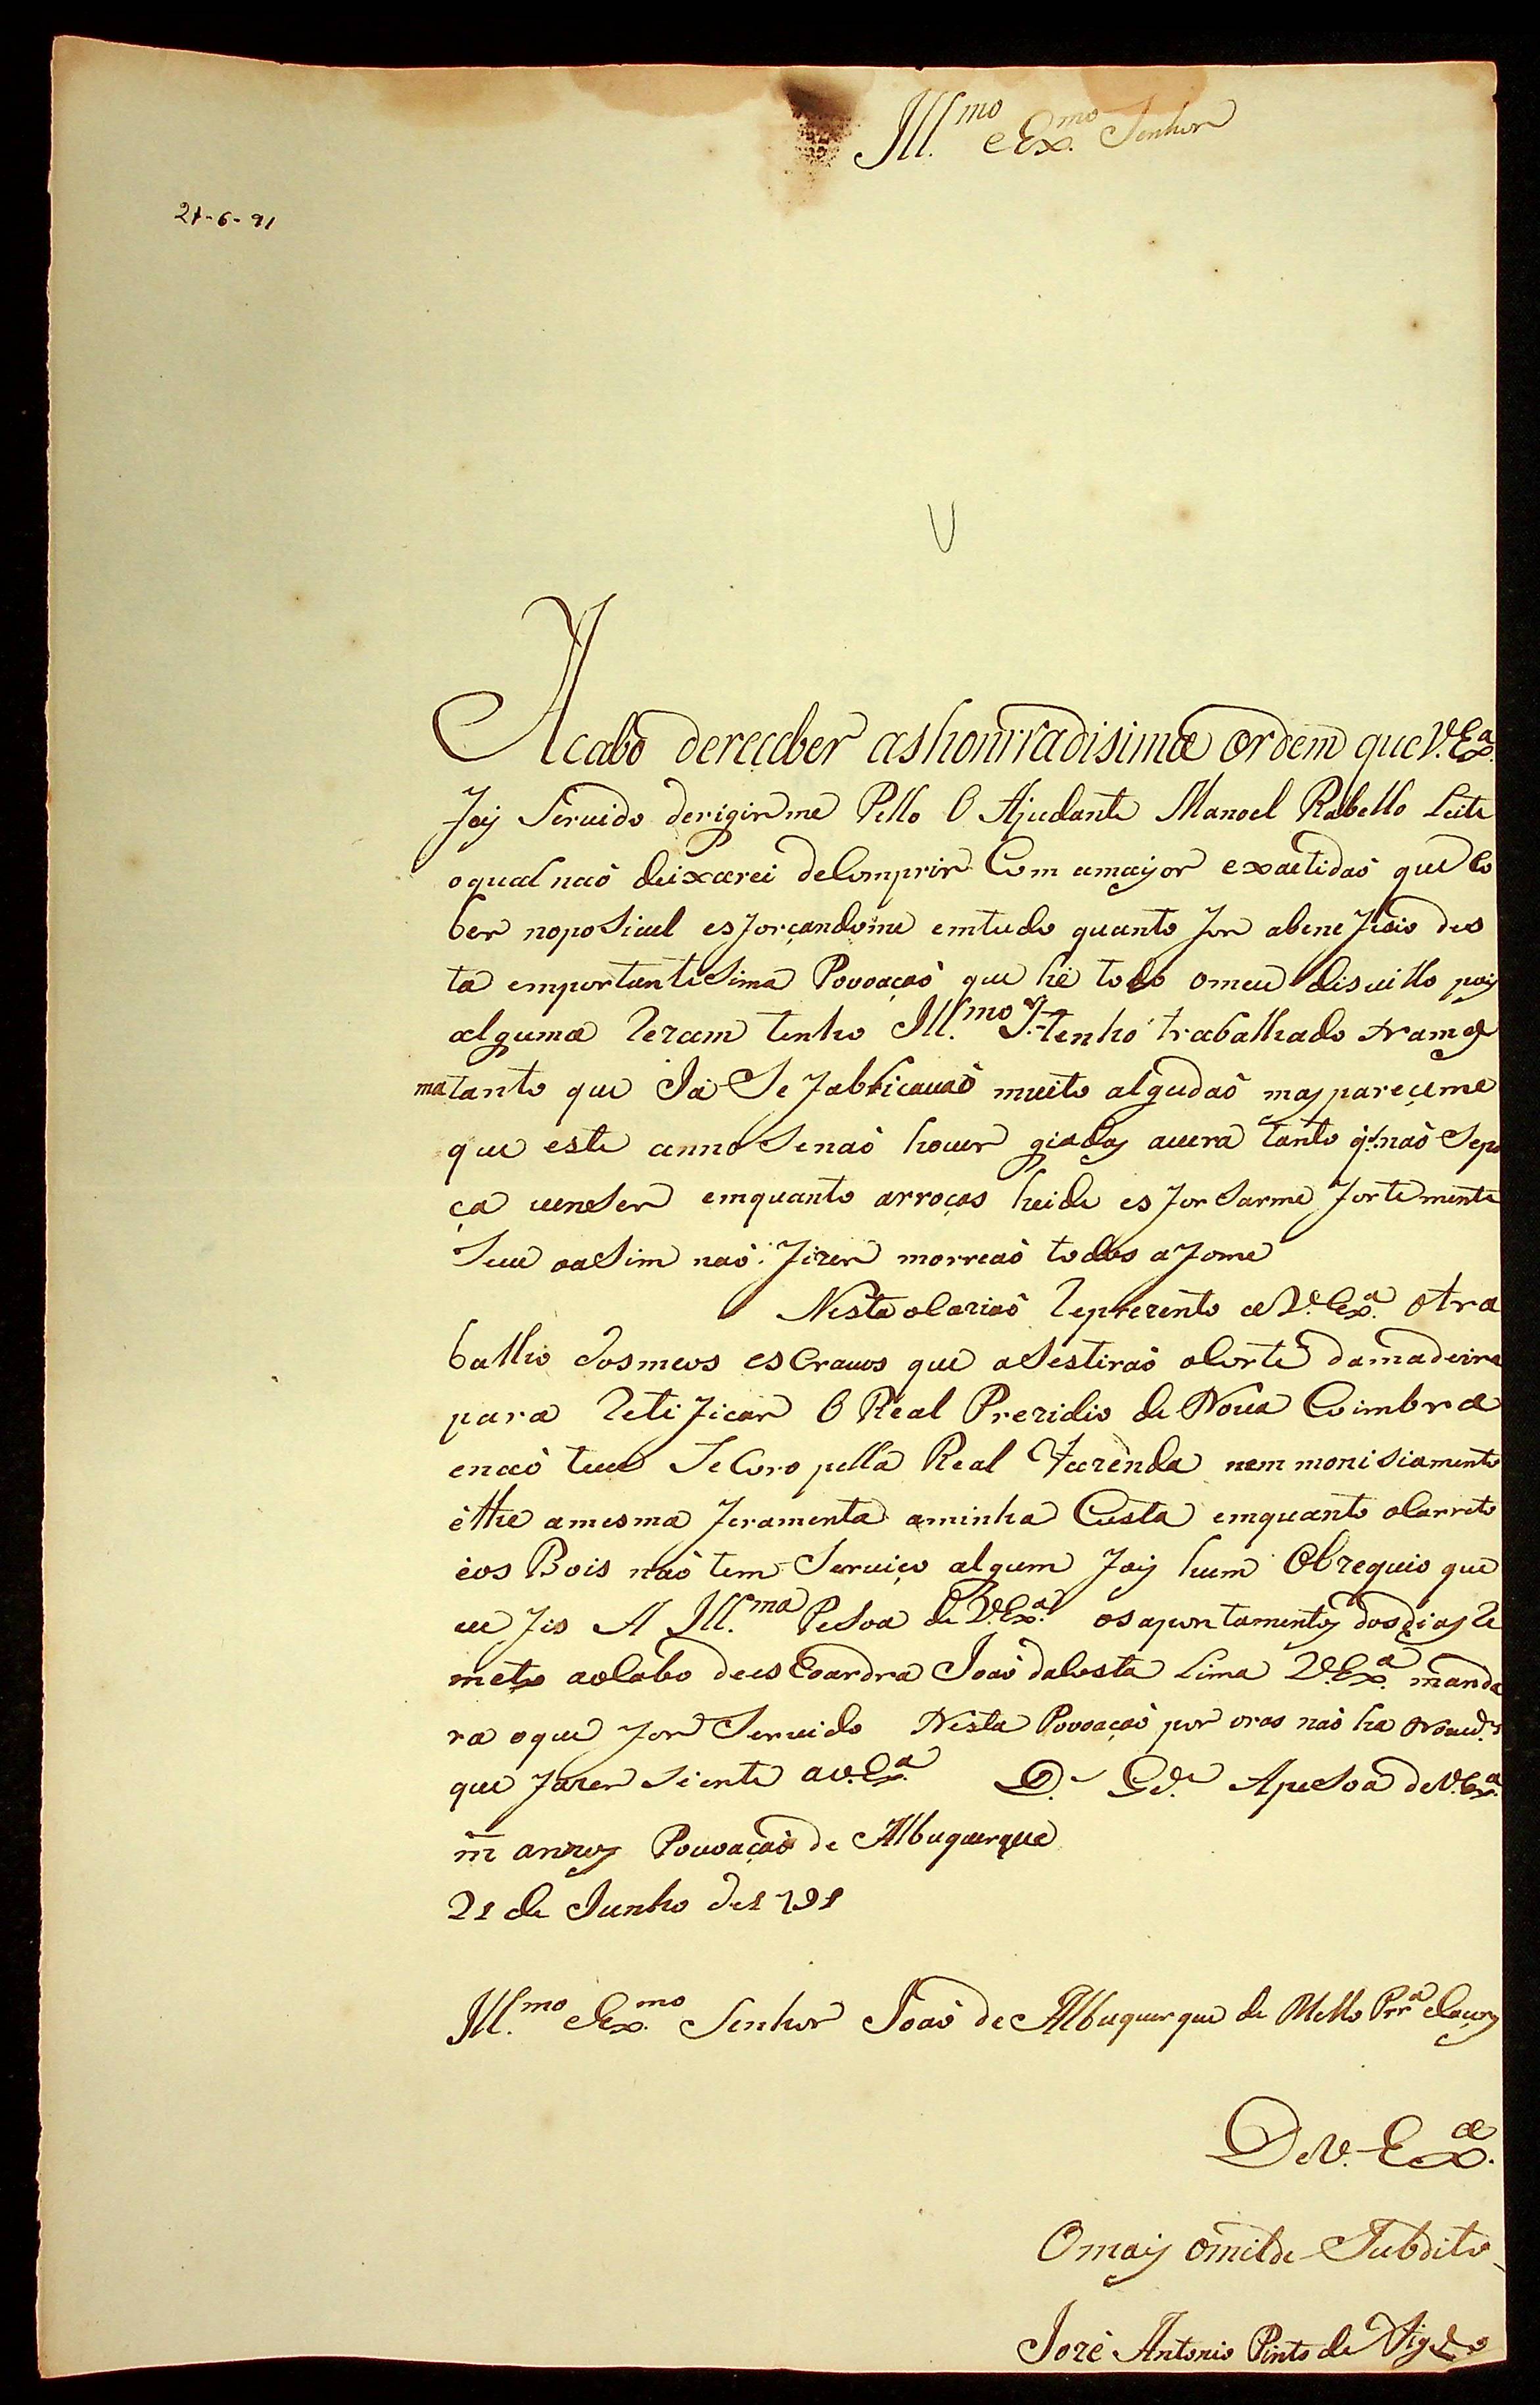 Ill.mo e Ex.mo Senhor
21-6-91
Acabo dereceber ashonrradisima ordem que V. Ex.a
foy Seruido derigirme Pello O Ajudante Manoel Rabello Leite
oqual naó deixarei deComprir Com amayor exactidaó que Co
ber noposiuel esforçandome emtudo quanto for abenefisio des
ta emportantisima Povoaçaó que hé todo omeu disuello poiş
alguma rezam tenho Ill.mo S.r tenho trabalhado
ma tanto que Já Se fabricauaó muito algudaó mas pareçeme
que este anno Senaó houer giadas auera tanto q.' naó Sepo
ça uenser emquanto arroças heide esforSarme fortemente
Seu oasim naó fizer morreaó todos afome
Nesta olariaó reprezento a V. Ex.a otra
balho dosmeos esCrauos que aSestiraó aCorte damadeira
para retificar O Real Prezidio de Noua Coimbra
enaó teue SeCoro pella Real Fazenda nem monisiamento
éthe amesma feramenta aminha Custa emquanto oCarreto
éos Bois naó tem Seruiço algum foy hum Obzequio que
eu fis A Ill.ma PeSoa de V. Ex.a os apontamentos dos dias re
meto aoCabo dees Coardra Joaó daCosta Lima V. Ex.a manda
ra oque for Seruido Nesta Povoaçaó por oras naó ha nouid.e
que fazer Siente aV. Ex.a D.s G.de ApeSoa de V. Ex.a
m annos Pouoaçaó de Albuquerque
21 de Junho de1791
Ill.mo e Ex.mo Senhor Joaó de Albuquerque de Mello Prr.a eCaçres
De V. Ex.a
Omays omilde Subdito
Jozé Antonio Pinto de Fig.do